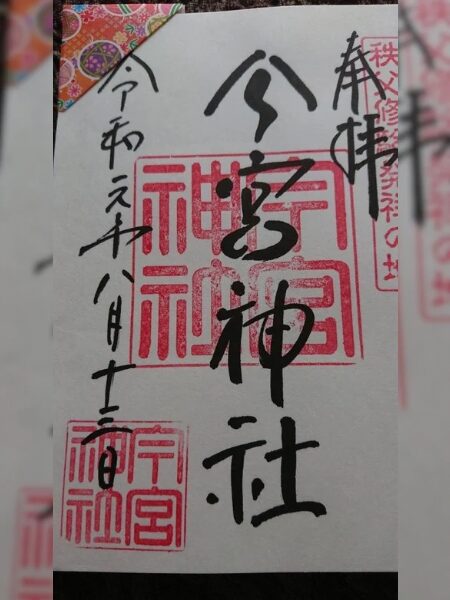 奉拝
秩父修験発祥の地
今宮神社
今宮神社
令和元年八月十三日
今宮神社